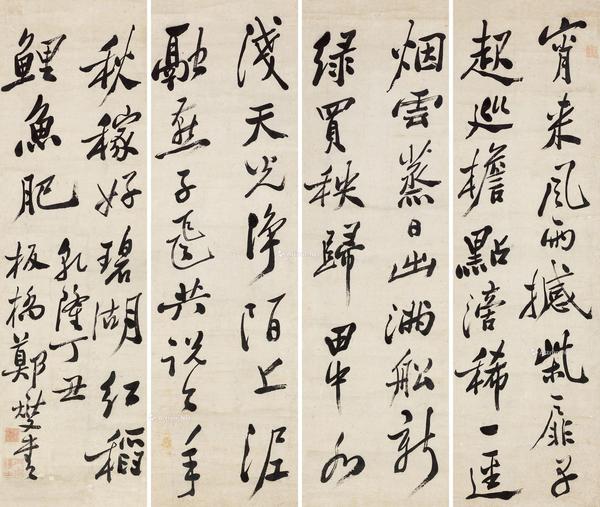 宵来風雨撼柴扉早
起巡檐點滴稀一逕
烟雲蒸日出滿船新
緑買秧歸田中水
淺天光浄陌上泥
融燕子飛共説今年
秋稼好碧湖紅稻
鯉魚肥
乾隆丁丑
板橋鄭燮書